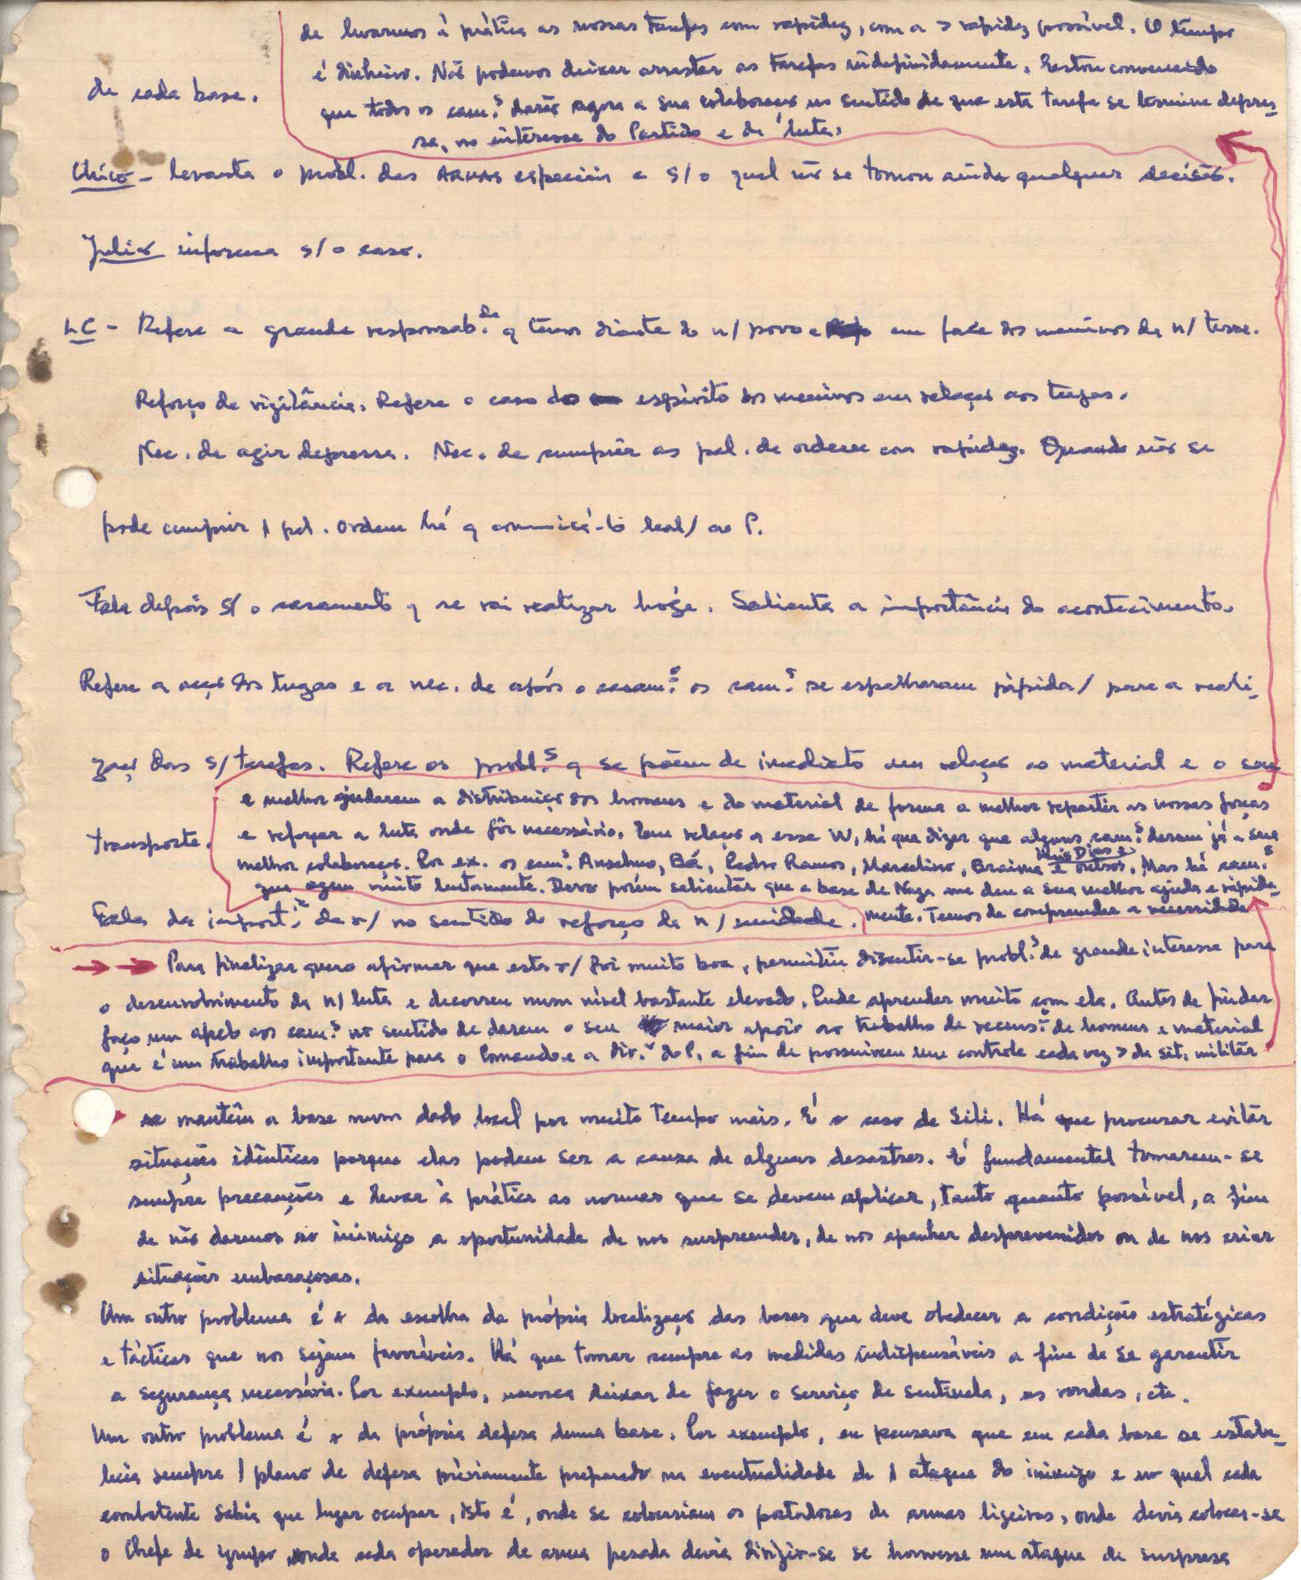 de levarmos à prática as nossas tarefas com rapidez, com a > rapidez possível. O tempo
é dinheiro. Não podemos deixar arrastar as tarefas indefinidamente. Estou convencido
de cada base.
que todos os cam.s darão agora a sua colaboração no sentido de que esta tarefa se termine depres-
sa, no interesse do Partido e da luta.
Chico - levanta o probl. das ARMAS especiais e s/ o qual não se tomou ainda qualquer decisão.
Julião informa s/ o caso.
LC - Refere a grande responsab.de q temos diante do n/ povo e em face dos meninos da n/ terra.
Reforço da vigilância. Refere o caso do espírito dos meninos em relação aos tugas.
Nec. de agir depressa. Nec. de cumprir as pal. de ordem com rapidez. Quando não se
pode cumprir 1 pal. ordem há q comunicá-lo leal/ ao P.
Fala depois s/ o casamento q se vai realizar hoje. Salienta a importância do acontecimento.
Refere a acção dos tugas e a nec. de após o casam.o os cam.s se espalharem rápida/ para a reali-
zação das s/ tarefas. Refere os probl.s q se põem de imediato em relação ao material e o seu
e melhor ajudarem a distribuição dos homens e do material de forma a melhor repartir as nossas forças
transporte.
e reforçar a luta onde fôr necessário. Em relação a esse W, há que dizer que alguns cam.s deram já a sua
melhor colaboração. Por ex. os cam.s Anselmo, Bá, Pedro Ramos, Marcelino, Braima, Luís Dias e outros. Mas há cam.s
que agem muito lentamente. Devo porém salientar que a base de Naga me deu a sua melhor ajuda e rápida-
Fala da import.cia da r/ no sentido do reforço da n/ unidade.
mente. Temos de compreender a necessidade
Para finalizar quero afirmar que esta r/ foi muito boa, permitiu discutir-se probl.s de grande interesse para
o desenvolvimento da n/ luta e decorreu num nível bastante elevado. Pude aprender muito com ela. Antes de findar
faço um apelo aos cam.s no sentido de darem o seu maior apoio ao trabalho de recens.to de homens e material
que é um trabalho importante para o Comando e a Dir. do P. a fim de possuírem um controle cada vez > da sit. militar
se mantêm a base num dado local por muito tempo mais. É o caso de Sili. Há que procurar evitar
situações idênticas porque elas podem ser a causa de alguns desastres. É fundamental tomarem-se
sempre precauções e levar à prática as normas que se devem aplicar, tanto quanto possível, a fim
de não darmos ao inimigo a oportunidade de nos surpreender, de nos apanhar desprevenidos ou de nos criar
situações embaraçosas.
Um outro problema é o da escolha da própria localização das bases que deve obedecer a condições estratégicas
e tácticas que nos sejam favoráveis. Há que tomar sempre as medidas indispensáveis a fim de se garantir
a segurança necessária. Por exemplo, nunca deixar de fazer o serviço de sentinela, as rondas, etc.
Um outro problema é o da própria defesa duma base. Por exemplo, eu pensava que em cada base se estabe-
lecia sempre 1 plano de defesa préviamente preparado na eventualidade de 1 ataque do inimigo e no qual cada
combatente sabia que lugar ocupar, isto é, onde se colocariam os portadores de armas ligeiras, onde devia colocar-se
o Chefe de grupo, onde cada operador de arma pesada devia dirigir-se se houvesse um ataque de surpresa